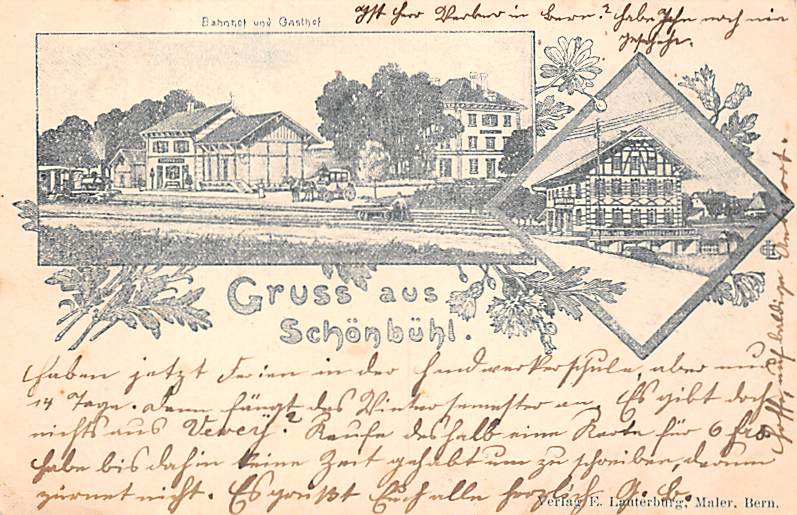 Bahnhof und Gasthof
Ist Herr Werber in Bern? Habe Ihn noch nie
gesehn.
Gruss aus
Schönbühl.
Haben jetzt Ferien in der Handwerkerschule, aber nur
14 Tage. Dann fängt das Wintersemester an. Es gibt doch
nichts aus Vevey? Kaufe deshalb eine Karte für 6 frs
habe bis dahin keine Zeit gehabt um zu schreiben, darum
zürnet nicht. Es grüßt Euch alle herzlich
Hoffe auf baldige Antwort.
Verlag E. Lauterburg, Maler, Bern.